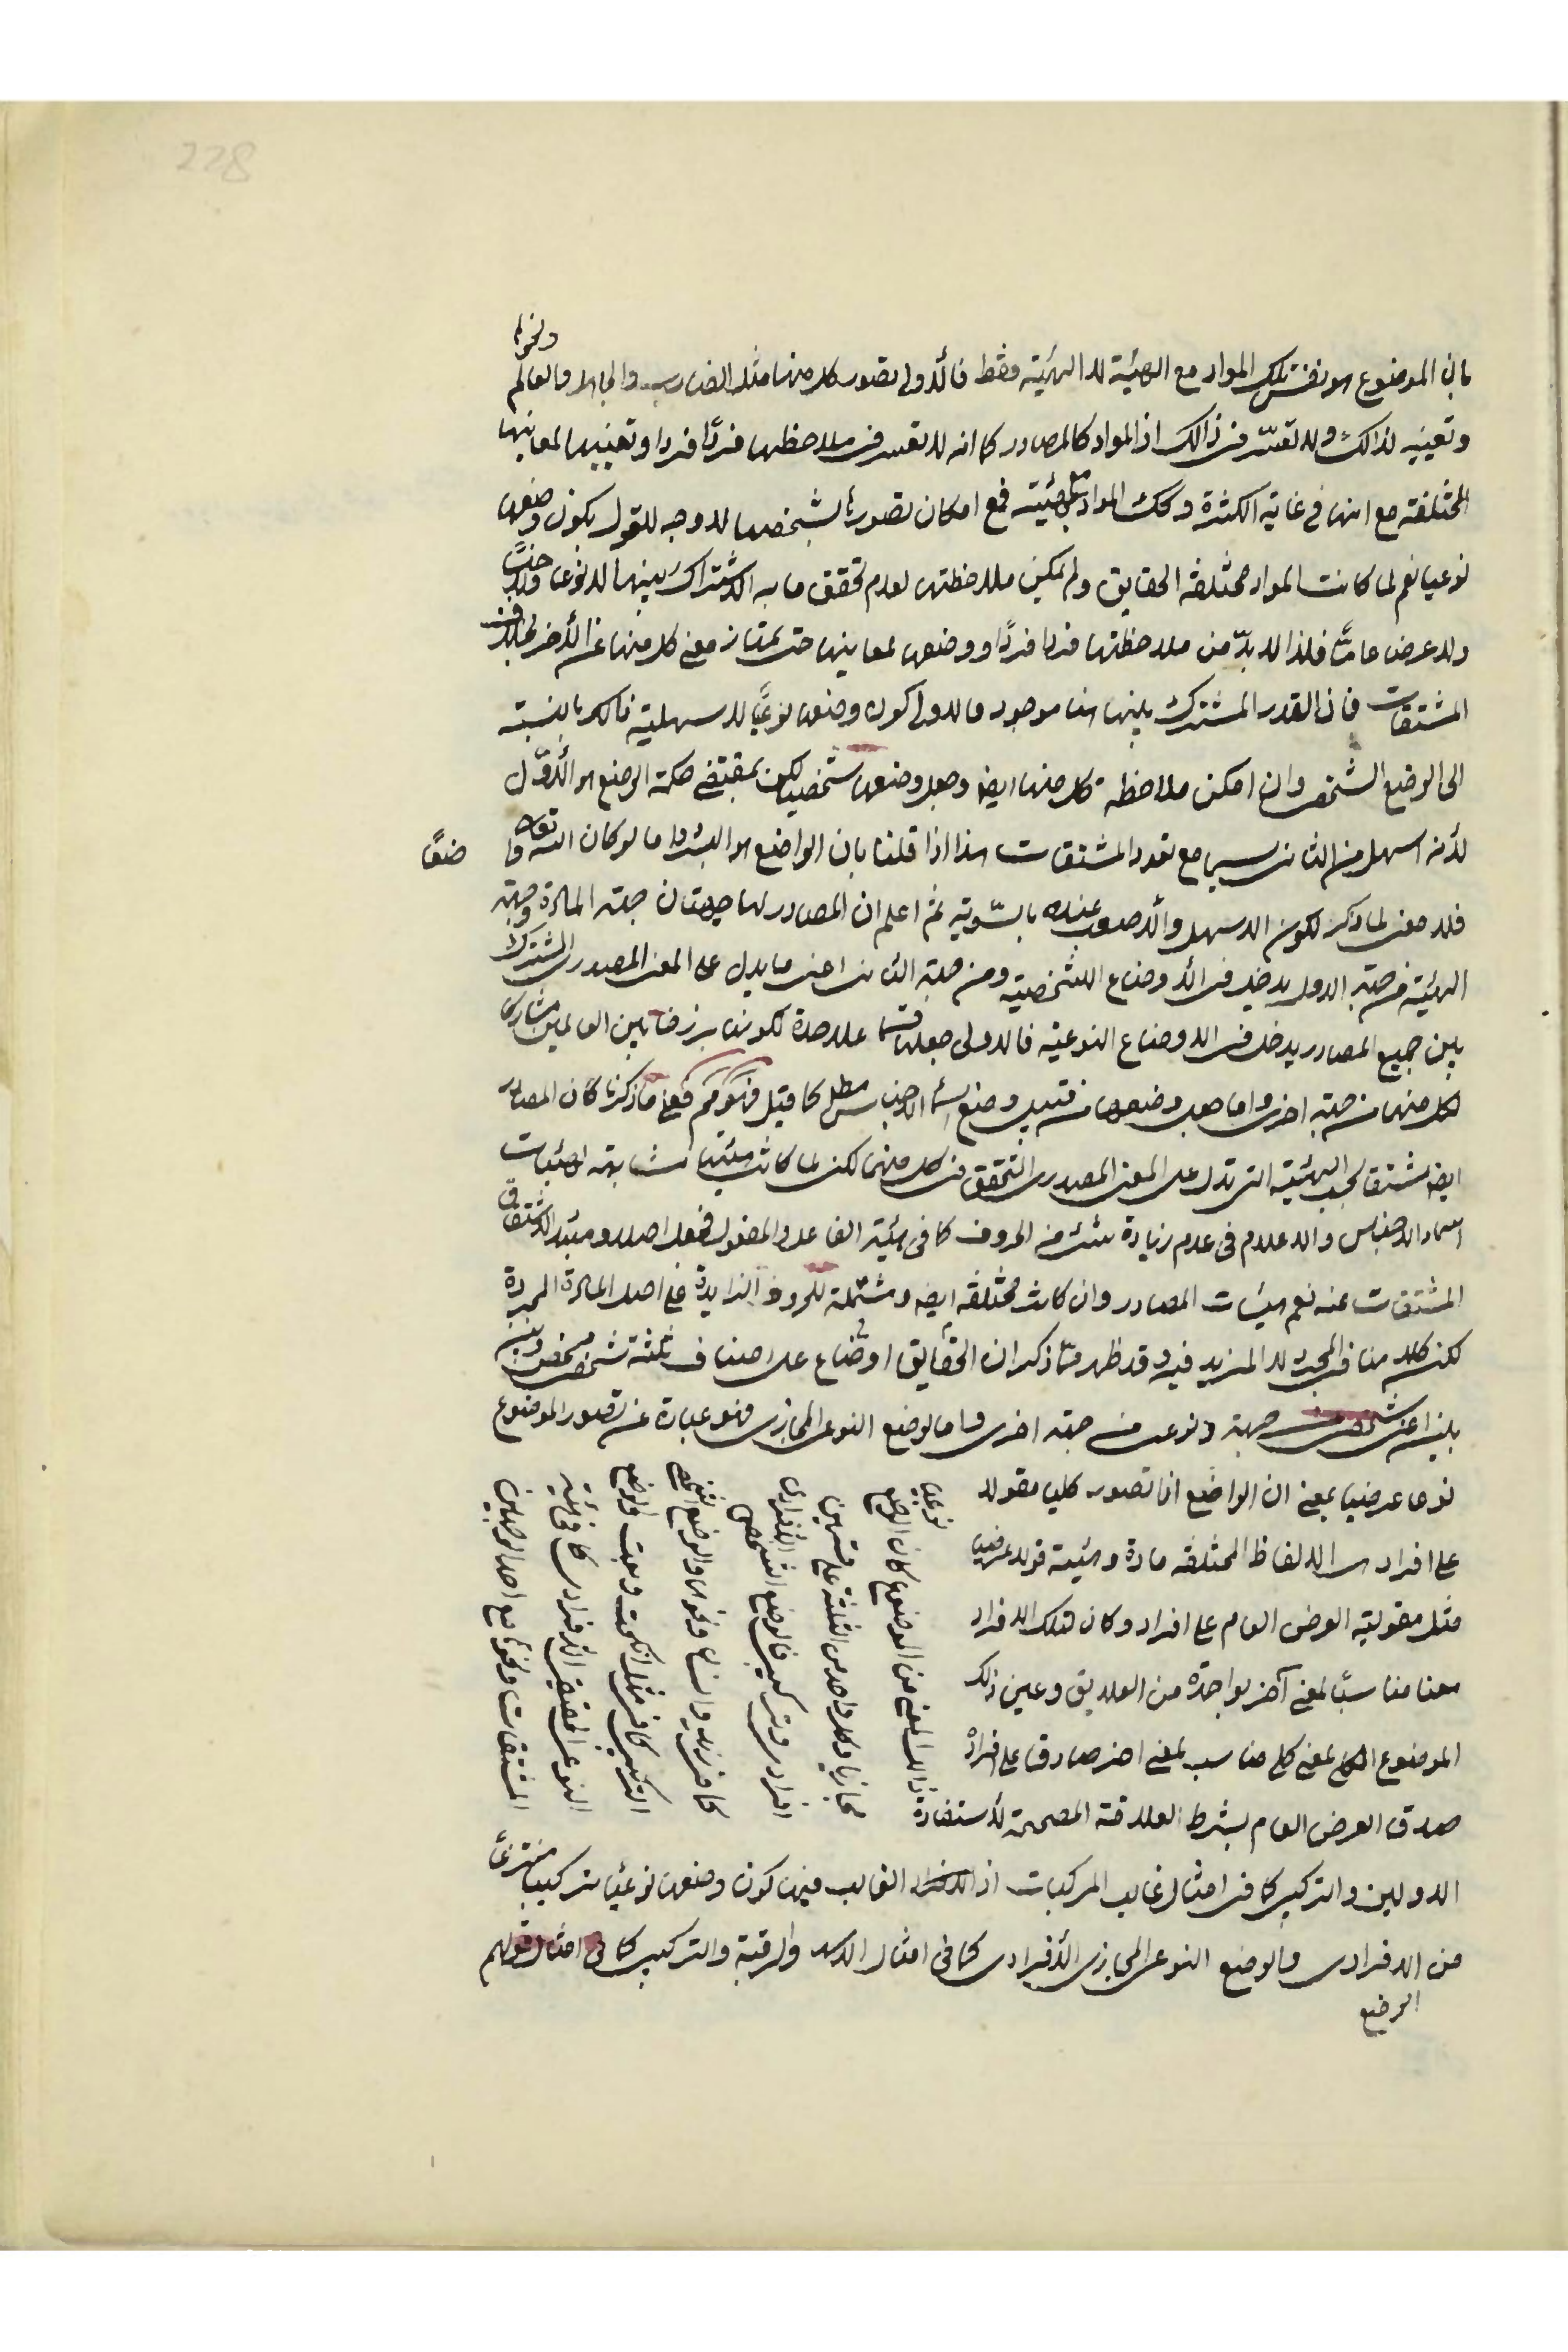 228
ونحوها
بان الموضوع هو نفس تلك المواد مع الهيئة لا الهيئة فقط فالأولى تصور كل منها مثل الضارب والجاهل والعالم
وتعيينه لذلك ولا تعسّر في ذالك اذ المواد كالمصادر كما انه لا تعسر في ملاحظتها فردًا فردا وتعيينها لمعانيها
المختلفة مع انها في غاية الكثرة وكك المواد مع الهيئة فمع امكان تصورها بشخصها لا وجه للقول بكون وضعها
نوعيا نعم لما كانت المواد مختلفة الحقايق ولم يمكن ملاحظتها لعدم تحقق ما به الاشتراك بينها لا نوعا ولا جنسًا
ولا عرضا عامًّا فلذا لا بدّ من ملاحظتها فردا فردًا ووضعها لمعانيها حتى يمتاز معنى كل منها عن الأخر بخلاف
المشتقات فان القدر المشترك بينها هنا موجود فالاولى كون وضعها نوعيًّا للاسهلية فالكل بالنسبة
الى الوضع الشخصى وان امكن ملاحظة كل منها ايضا وجعل وضعها شخصيا لكن بمقتضى حكمة الوضع هو الأوّل
لأنه اسهل من الثانى سيما مع تعدد المشتقات هذا اذا قلنا بان الواضع هو البشر واما لو كان الله تعالى واضعًا
فلا معنى لما ذكر لكون الاسهل والأصعب عنده بالسّوية ثم اعلم ان المصادر لها جهتان جهة المادة وجهة
الهيئة فمن جهة الاول يدخل فى الأوضاع الشخصية ومن جهة الثانى اعنى ما يدل على المعنى المصدرى المشترك
بين جميع المصادر يدخل فى الاوضاع النوعية فالاولى جعلها قسما علاحدة لكونها برزخا بين العالمين مشاركا
لكل منهما من جهة اخرى واما جعل وضعها من قبيل وضع اسماء الاجناس مطلقا كما قيل فتوهّم فعلى ما ذكرنا كان المصادر
ايضا مشتقا لحسب الهيئية التى تدل على المعنى المصدرى المتحقق فى كل منها لكن لما كانت هيئتها مشابهة لهيئات
اسماء الاجناس والاعلام فى عدم زيادة شئ من الحروف كما فى هيئة الفاعل والمفعول فجعل اصلا ومبدء لاشتقاق
المشتقات عنه نعم هيئات المصادر وان كانت مختلفة ايضا ومشتملة للحروف الزايدة على اصل المادة المجردة
لكن كلامنا فى المجرد لا المزيد فيه وقد ظهر ممّا ذكر ان الحقايق اوضاع على اصناف ثلثة شخصى محض وبين
بين اعنى شخصى من جهة ونوعى من جهة اخرى واما الوضع النوعى المجازى فهو عبارة عن تصور الموضوع
نوعا عرضيا بمعنى ان الواضع اذا تصور كليا مقولا
على افراد من الالفاظ المختلفة مادة وهيئة قولا عرضيا
مثل مقولية العرض العام على افراد وكان لتلك الافراد
معنا مناسبًا لمعنى آخر بواحدة من العلايق وعين ذلك
الموضوع الكلى لمعنى كلى مناسب لمعنى اخر صادق على افراد
صدق العرض العام بشرط العلاقة المصححة لأستفادة
ذالك المعنى من الموضوع كان الوضع
نوعيا
مجازيا وكل واحد من الثلثة على قسمين
افرادى وتركيبى فالوضع الشخصى الأفرادى
كما فى زيد وانسان ونحوها والوضع الشخصى
التركيبى كما فى مثل انكحت وبعت والوضع
النوعى الحقيقى الأفرادى كما فى هيئة
المشتقات ونحوها مع احد الوصلين
الاولين والتركيبى كما فى امثال غالب المركبات اذ الغالب فيها كون وضعها نوعيًّا تركيبيا منتزعًا
من الافرادى والوضع النوعى المجازى الأفرادى كما فى امثال الاسد والرقبة والتركيبى كما فى امثال قولهم
الوضع